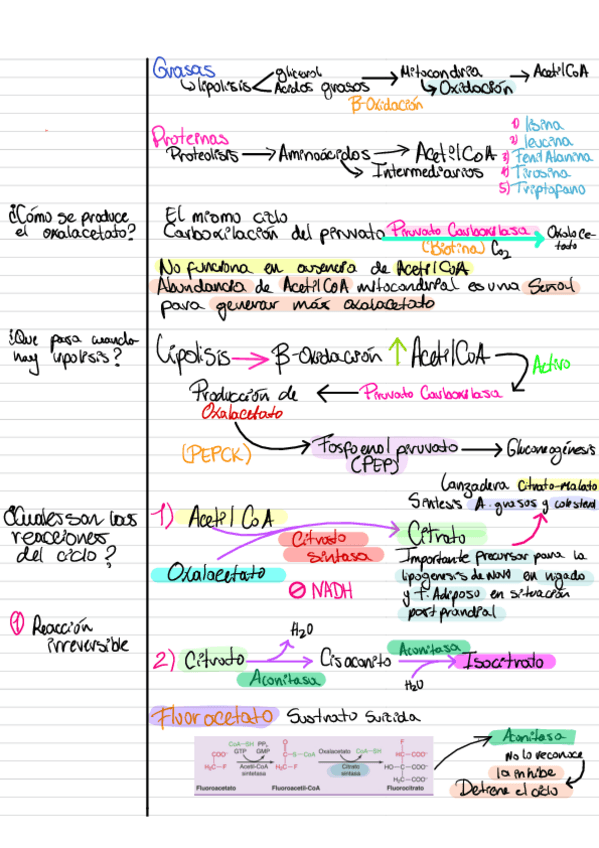 Grasas
Lipolisis glicerol Mitocondria → AcetilCoA
Ácidos grasos Oxidación
β-Oxidación
Proteinas
Proteolisis → Aminoácidos → AcetilCoA
Intermediarios
1) lisina
2) leucina
3) Fenil Alanina
4) Tirosina
5) Triptofano
¿Cómo se produce
el oxalacetato?
El mismo ciclo
Carboxilación del piruvato Piruvato Carboxilasa Oxalace-
tato
(Biotina) CO2
No funciona en ausencia de AcetilCoA
Abundancia de AcetilCoA mitocondrial es una señal
para generar más oxalacetato
¿Que pasa cuando
hay lipolisis?
Lipolisis → β-Oxidación ↑ AcetilCoA
Activo
Producción de ← Piruvato Carboxilasa
Oxalacetato
(PEPCK) Fosfoenol piruvato → Gluconeogénesis
(PEP)
Lanzadera Citrato-Malato
Sintesis A. grasos y colesterol
¿Cuales son las
reacciones
del ciclo?
1) Acetil CoA
Citrato
sintasa
Citrato
Oxalacetato
NADH
Importante precursor para la
lipogenesis de novo en higado
y t. Adiposo en situación
postprandial
1 Reacción
irreversible
H2O
2) Citrato Cisaconito Aconitasa Isocitrato
Aconitasa H2O
Fluoroacetato Sustrato Suicida
CoA-SH PPi
GTP GMP
COO-
H2C-F
Acetil-CoA
sintetasa
Fluoroacetato
O
C-S-CoA
H2C-F
Fluoroacetil-CoA
Oxalacetato CoA-SH
Citrato
sintasa
F
HC-COO-
HO-C-COO-
H2C-COO-
Fluorocitrato
Aconitasa
No lo reconoce
la inhibe
Detiene el ciclo